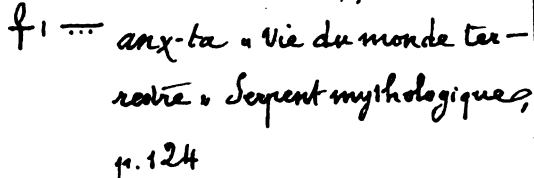 𓋹 𓏤 𓇾 anx-ta « Vie du monde ter-
restre » Serpent mythologique,
p. 124